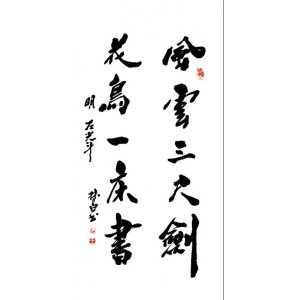 風雲三尺劍
花鳥一床書
明 左光斗